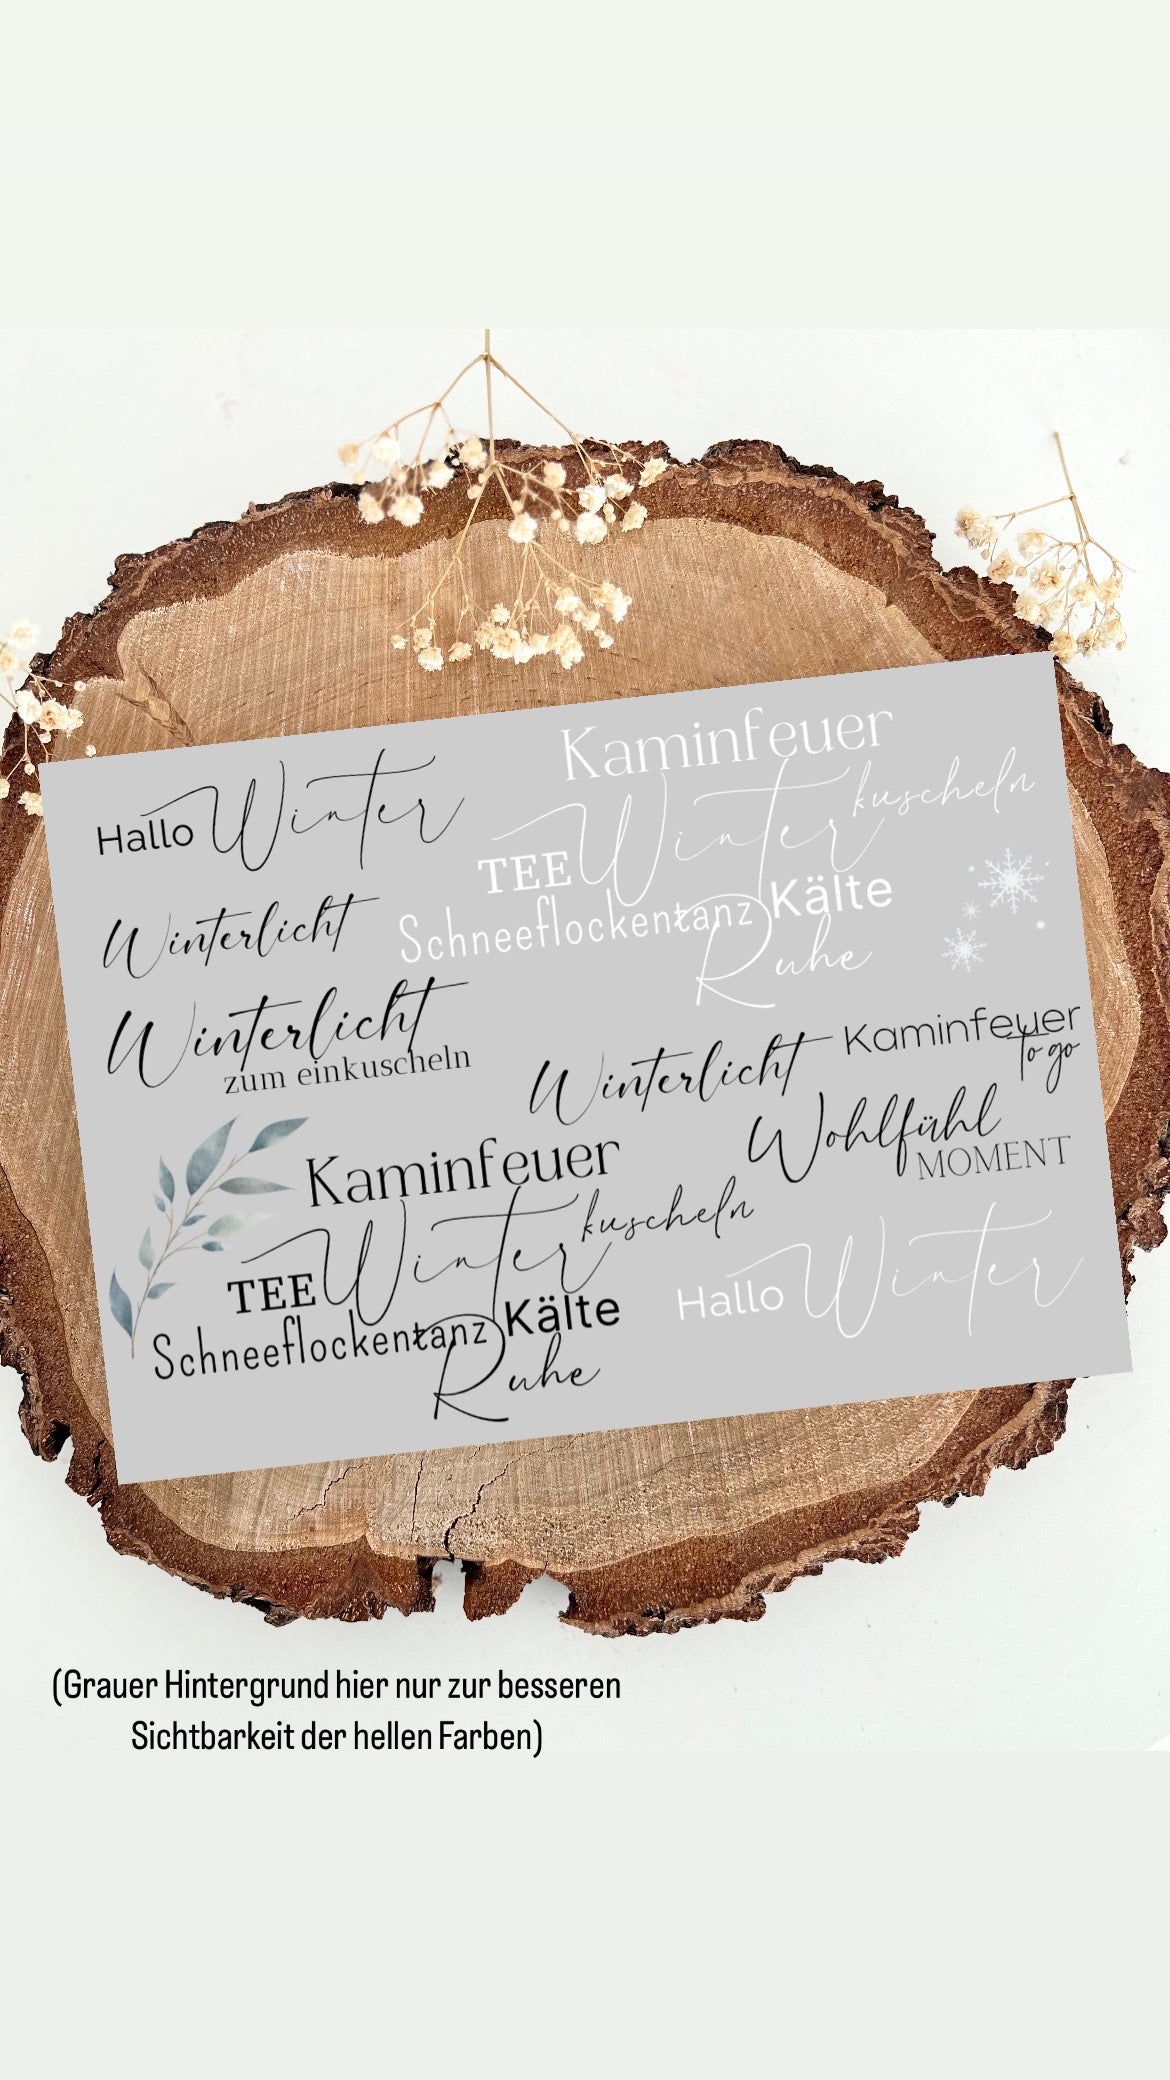 Hallo Winter
Winterlicht
Winterlicht
zum einkuscheln
Kaminfeuer
Winter kuscheln
TEE
Schneeflockentanz Kälte
Ruhe
Winterlicht
Kaminfeuer
to go
Wohlfühl
MOMENT
Kaminfeuer
Winter kuscheln
TEE
Schneeflockentanz Kälte
Ruhe
Hallo Winter
(Grauer Hintergrund hier nur zur besseren
Sichtbarkeit der hellen Farben)